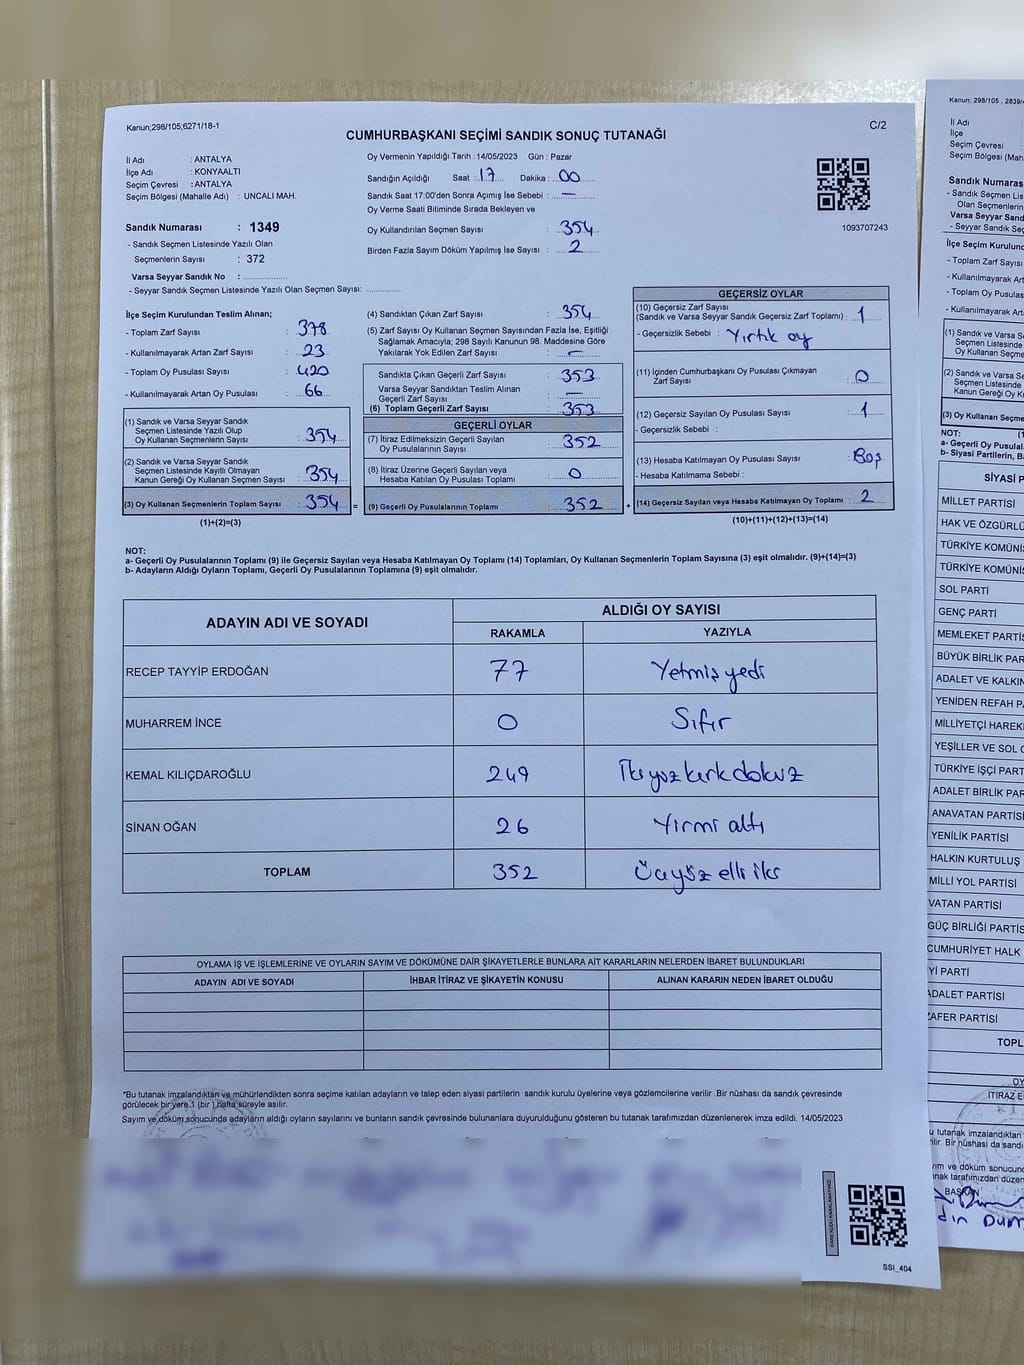 Kanun;298/105;6271/18-1
C/2
CUMHURBAŞKANI SEÇİMİ SANDIK SONUÇ TUTANAĞI
İl Adı : ANTALYA
İlçe Adı : KONYAALTI
Seçim Çevresi : ANTALYA
Seçim Bölgesi (Mahalle Adı) : UNCALI MAH.
Sandık Numarası : 1349
- Sandık Seçmen Listesinde Yazılı Olan
Seçmenlerin Sayısı : 372
Varsa Seyyar Sandık No : ..............
- Seyyar Sandık Seçmen Listesinde Yazılı Olan Seçmen Sayısı: ............
Oy Vermenin Yapıldığı Tarih : 14/05/2023 Gün : Pazar
Sandığın Açıldığı Saat : 17 Dakika : 00
Sandık Saat 17:00'den Sonra Açımış İse Sebebi : —
Oy Verme Saati Bitiminde Sırada Bekleyen ve
Oy Kullandırılan Seçmen Sayısı : 354
Birden Fazla Sayım Döküm Yapılmış İse Sayısı : 2
1093707243
İlçe Seçim Kurulundan Teslim Alınan;
- Toplam Zarf Sayısı : 378
- Kullanılmayarak Artan Zarf Sayısı : 23
- Toplam Oy Pusulası Sayısı : 420
- Kullanılmayarak Artan Oy Pusulası : 66
(1) Sandık ve Varsa Seyyar Sandık
Seçmen Listesinde Yazılı Olup
Oy Kullanan Seçmenlerin Sayısı : 354
(2) Sandık ve Varsa Seyyar Sandık
Seçmen Listesinde Kayıtlı Olmayan
Kanun Gereği Oy Kullanan Seçmen Sayısı : 354
(3) Oy Kullanan Seçmenlerin Toplam Sayısı : 354 =
(1)+(2)=(3)
(4) Sandıktan Çıkan Zarf Sayısı : 354
(5) Zarf Sayısı Oy Kullanan Seçmen Sayısından Fazla İse, Eşitliği
Sağlamak Amacıyla; 298 Sayılı Kanunun 98. Maddesine Göre
Yakılarak Yok Edilen Zarf Sayısı : —
Sandıkta Çıkan Geçerli Zarf Sayısı : 353
Varsa Seyyar Sandıktan Teslim Alınan
Geçerli Zarf Sayısı : —
(6) Toplam Geçerli Zarf Sayısı : 353
GEÇERLİ OYLAR
(7) İtiraz Edilmeksizin Geçerli Sayılan
Oy Pusulalarının Sayısı : 352
(8) İtiraz Üzerine Geçerli Sayılan veya
Hesaba Katılan Oy Pusulası Toplamı : 0
(9) Geçerli Oy Pusulalarının Toplamı : 352 +
GEÇERSİZ OYLAR
(10) Geçersiz Zarf Sayısı
(Sandık ve Varsa Seyyar Sandık Geçersiz Zarf Toplamı) : 1
- Geçersizlik Sebebi : Yırtık oy
(11) İçinden Cumhurbaşkanı Oy Pusulası Çıkmayan
Zarf Sayısı : 0
(12) Geçersiz Sayılan Oy Pusulası Sayısı : 1
- Geçersizlik Sebebi :
(13) Hesaba Katılmayan Oy Pusulası Sayısı : Boş
- Hesaba Katılmama Sebebi :
(14) Geçersiz Sayılan veya Hesaba Katılmayan Oy Toplamı : 2
(10)+(11)+(12)+(13)=(14)
NOT:
a- Geçerli Oy Pusulalarının Toplamı (9) ile Geçersiz Sayılan veya Hesaba Katılmayan Oy Toplamı (14) Toplamları, Oy Kullanan Seçmenlerin Toplam Sayısına (3) eşit olmalıdır. (9)+(14)=(3)
b- Adayların Aldığı Oyların Toplamı, Geçerli Oy Pusulalarının Toplamına (9) eşit olmalıdır.
ADAYIN ADI VE SOYADI ALDIĞI OY SAYISI
RAKAMLA YAZIYLA
RECEP TAYYİP ERDOĞAN 77 Yetmiş yedi
MUHARREM İNCE 0 Sıfır
KEMAL KILIÇDAROĞLU 249 İki yüz kırk dokuz
SİNAN OĞAN 26 Yirmi altı
TOPLAM 352 Üçyüz elli iki
OYLAMA İŞ VE İŞLEMLERİNE VE OYLARIN SAYIM VE DÖKÜMÜNE DAİR ŞİKAYETLERLE BUNLARA AİT KARARLARIN NELERDEN İBARET BULUNDUKLARI
ADAYIN ADI VE SOYADI İHBAR İTİRAZ VE ŞİKAYETİN KONUSU ALINAN KARARIN NEDEN İBARET OLDUĞU
*Bu tutanak imzalandıktan ve mühürlendikten sonra seçime katılan adayların ve talep eden siyasi partilerin sandık kurulu üyelerine veya gözlemcilerine verilir .Bir nüshası da sandık çevresinde
görülecek bir yere 1 (bir ) hafta süreyle asılır.
Sayım ve döküm sonucunda adayların aldığı oyların sayılarını ve bunların sandık çevresinde bulunanlara duyurulduğunu gösteren bu tutanak tarafımızdan düzenlenerek imza edildi. 14/05/2023
SSI_404
Kanun; 298/105 , 2839/
İl Adı
İlçe
Seçim Çevresi
Seçim Bölgesi (Mah
Sandık Numaras
- Sandık Seçmen Lis
Olan Seçmenlerin
Varsa Seyyar Sand
- Seyyar Sandık Seç
İlçe Seçim Kurulunc
- Toplam Zarf Sayısı
- Kullanılmayarak Art
- Toplam Oy Pusulas
- Kullanılmayarak Arta
(1) Sandık ve Varsa S
Seçmen Listesinde
Oy Kullanan Seçme
(2) Sandık ve Varsa Se
Seçmen Listesinde
Kanun Gereği Oy K
(3) Oy Kullanan Seçme
NOT:
a- Geçerli Oy Pusulal
b- Siyasi Partilerin, B
SİYASİ P
MİLLET PARTİSİ
HAK VE ÖZGÜRLÜ
TÜRKİYE KOMÜNİ
TÜRKİYE KOMÜNİS
SOL PARTİ
GENÇ PARTİ
MEMLEKET PARTİS
BÜYÜK BİRLİK PAR
ADALET VE KALKIN
YENİDEN REFAH P
MİLLİYETÇİ HAREK
YEŞİLLER VE SOL
TÜRKİYE İŞÇİ PARTİ
ADALET BİRLİK PAR
ANAVATAN PARTİS
YENİLİK PARTİSİ
HALKIN KURTULUŞ
MİLLİ YOL PARTİSİ
VATAN PARTİSİ
GÜÇ BİRLİĞİ PARTİS
CUMHURİYET HALK
Yİ PARTİ
ADALET PARTİSİ
ZAFER PARTİSİ
TOPL
OY
İTİRAZ E
u tutanak imzalandıktan
ilir. Bir nüshası da sandı
yım ve döküm sonucund
nak tarafımızdan düzen
BAŞKAN